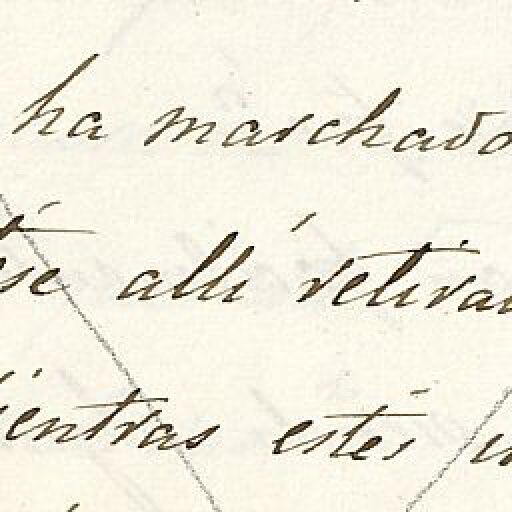 ha marchado
allí retira
mientras estés